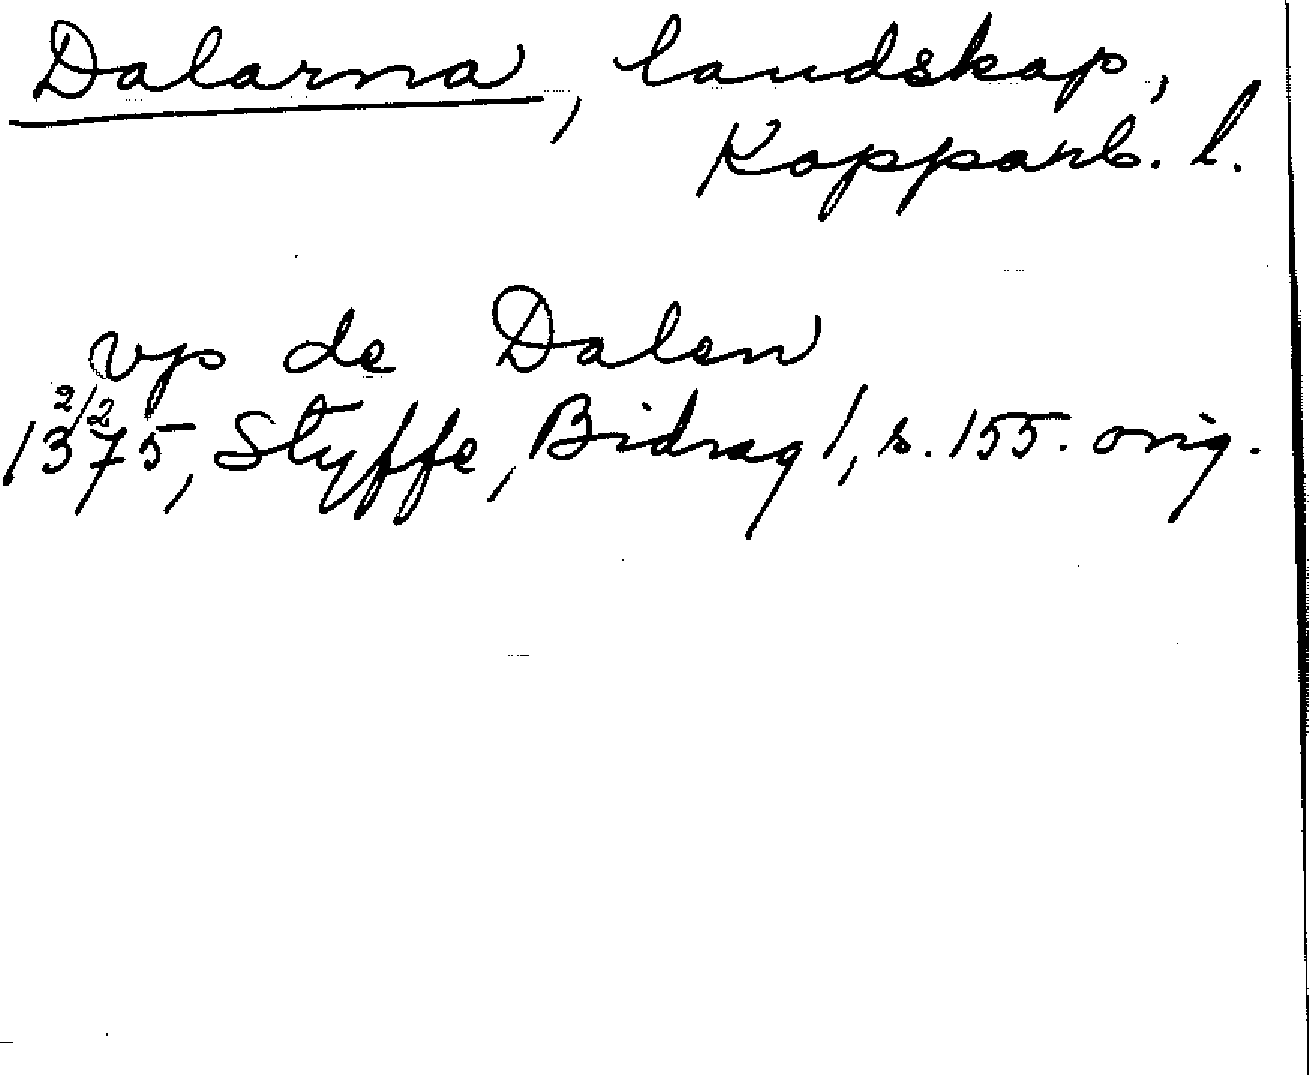 Dalarna, landskap,
Kopparb. l.
vp de Dalen
2/2
1375, Styffe, Bidrag 1, s. 155. orig.